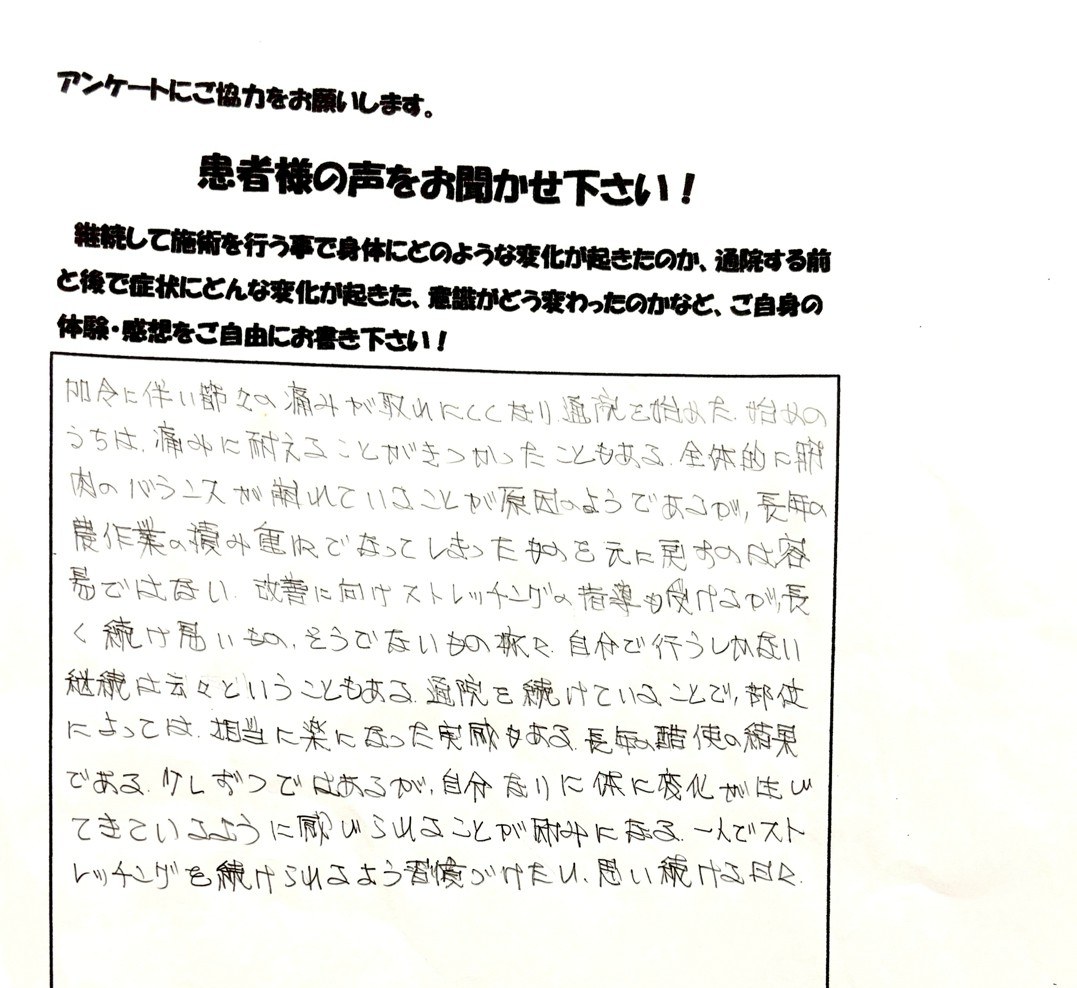 アンケートにご協力をお願いします。
患者様の声をお聞かせ下さい！
継続して施術を行う事で身体にどのような変化が起きたのか、通院する前
と後で症状にどんな変化が起きた、意識がどう変わったのかなど、ご自身の
体験・感想をご自由にお書き下さい！
加令に伴い節々の痛みが取れにくくなり通院を始めた.始めの
うちは.痛みに耐えることがきつかったこともある.全体的に筋
肉のバランスが崩れていることが原因のようであるが,長年の
農作業の積み重ねでなってしまったものを元に戻すのは容
易ではない.改善に向けストレッチングの指導も受けるが,長
く続け易いもの.そうでないもの 々.自分で行うしかない
継続は云々ということもある.通院を続けていることで,部位
によっては.相当に楽になった実感もある.長年の酷使の結果
である.少しずつではあるが,自分なりに体に変化が生じ
てきているように感じられることが励みになる.一人でスト
レッチングを続けられるよう習慣づけたい.思い続ける日々.